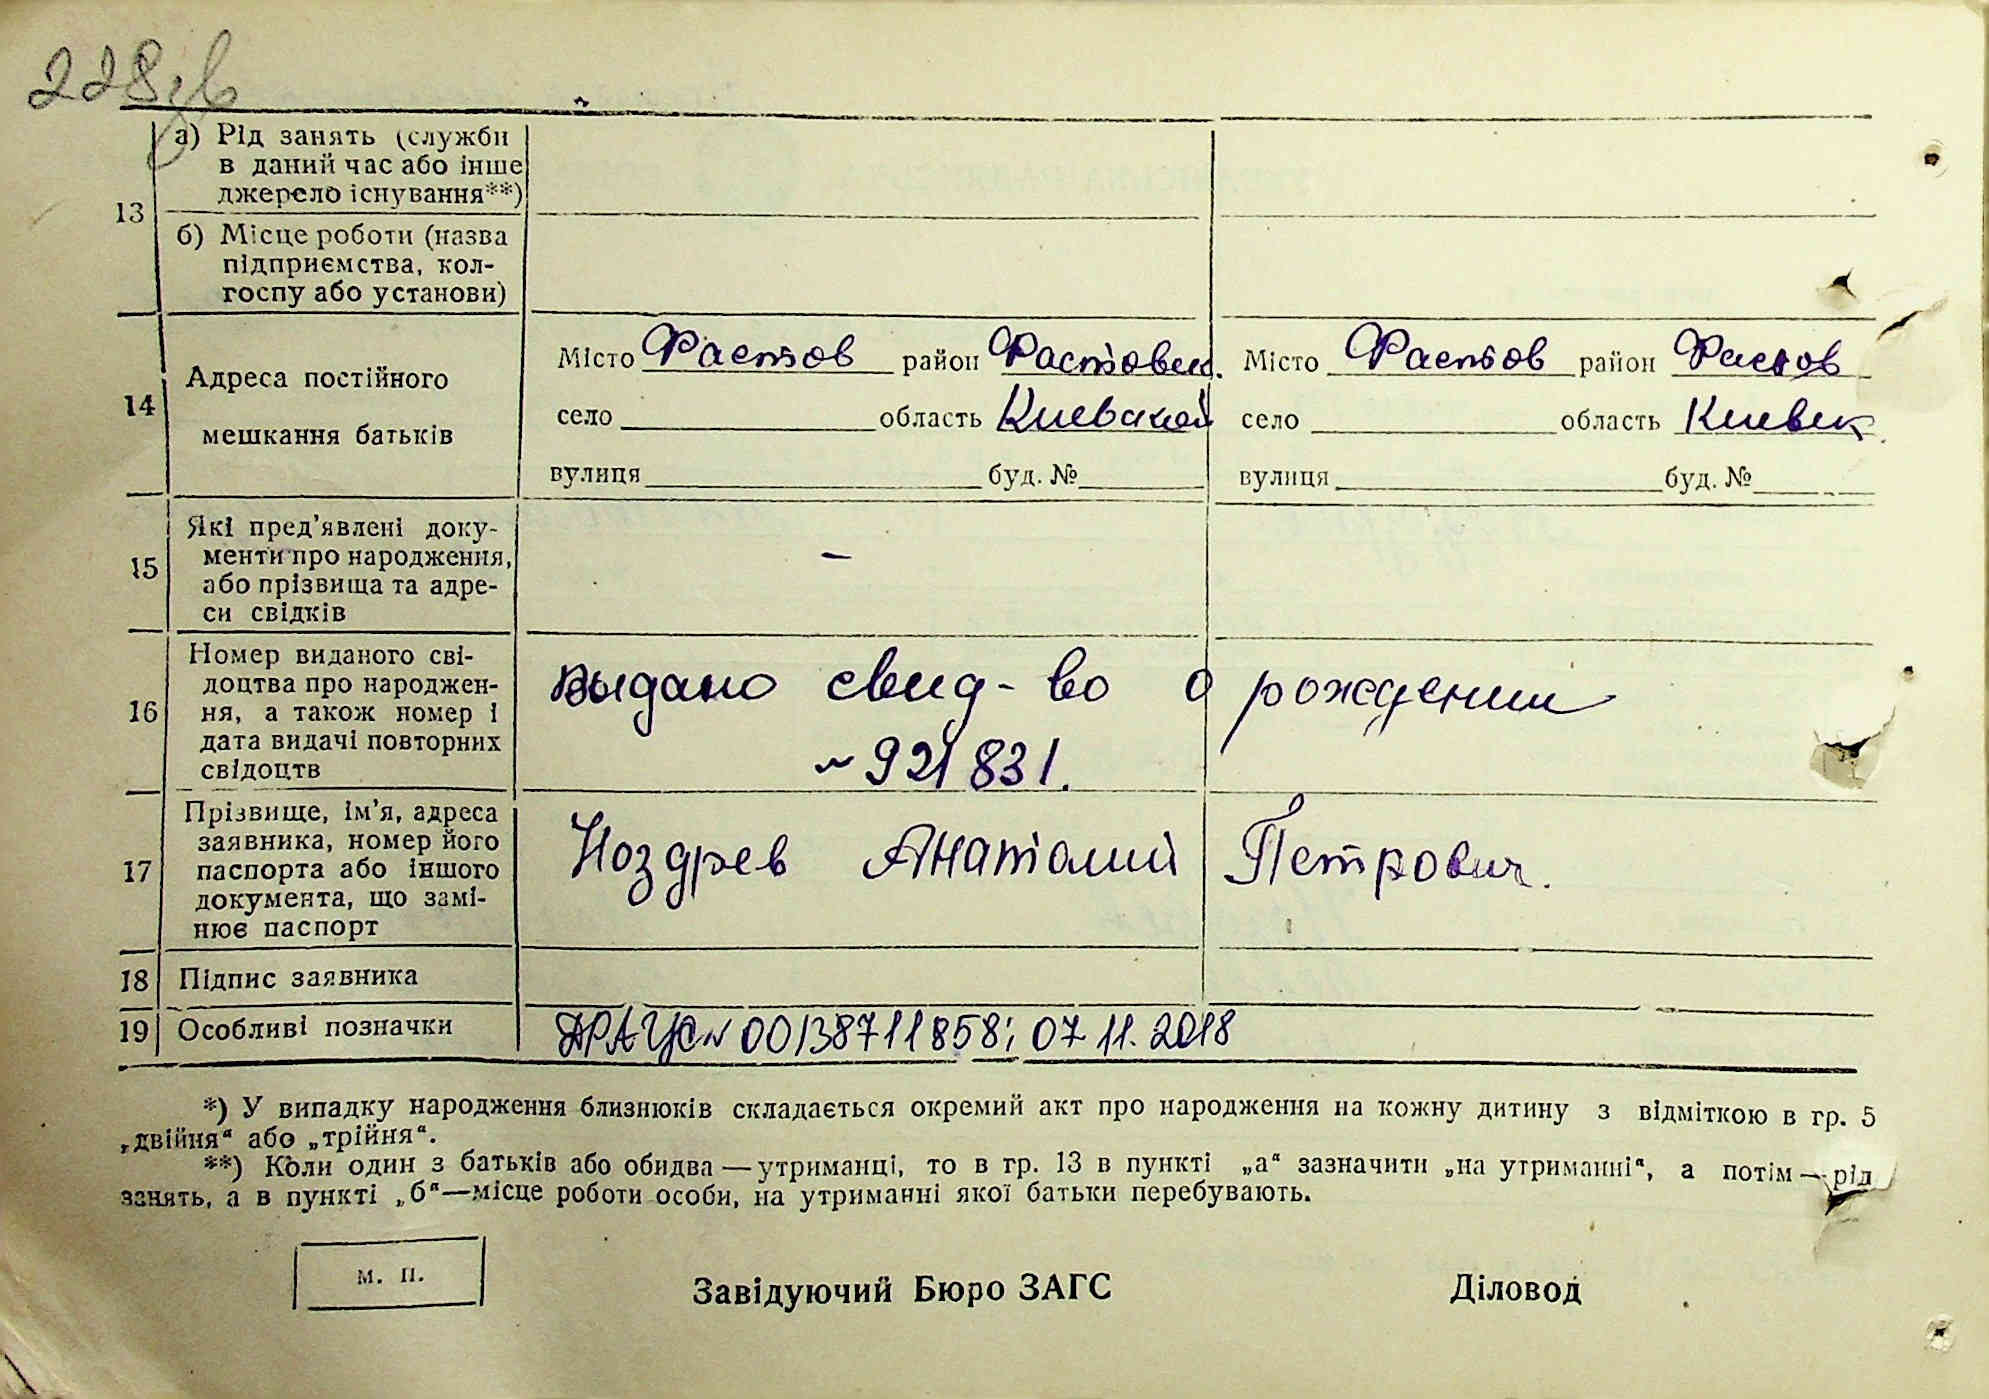 228зв
13
а) Рід занять (служби
в даний час або інше
джерело існування**)
б) Місце роботи (назва
підприємства, кол-
госпу або установи)
14
Адреса постійного
мешкання батьків
Місто Фастов район Фастовск. Місто Фастов район Фастов
село область Киевской село область Киевск
вулиця буд. № вулиця буд. №
15
Які пред’явлені доку-
менти про народження,
або прізвища та адре-
си свідків
–
16
Номер виданого сві-
доцтва про народжен-
ня, а також номер і
дата видачі повторних
свідоцтв
Выдано свид-во о рождении
~ 921831.
17
Прізвище, ім’я, адреса
заявника, номер його
паспорта або іншого
документа, що замі-
нює паспорт
Ноздрев Анатолий Петрович.
18 Підпис заявника
19 Особливі позначки
ДРАЦСN 00138711858; 07.11.2018
*) У випадку народження близнюків складається окремий акт про народження на кожну дитину з відміткою в гр. 5
„двійня“ або „трійня“.
**) Коли один з батьків або обидва — утриманці, то в гр. 13 в пункті „а“ зазначити „на утриманні“, а потім — рід
занять, а в пункті „б“—місце роботи особи, на утриманні якої батьки перебувають.
м. п.
Завідуючий Бюро ЗАГС Діловод